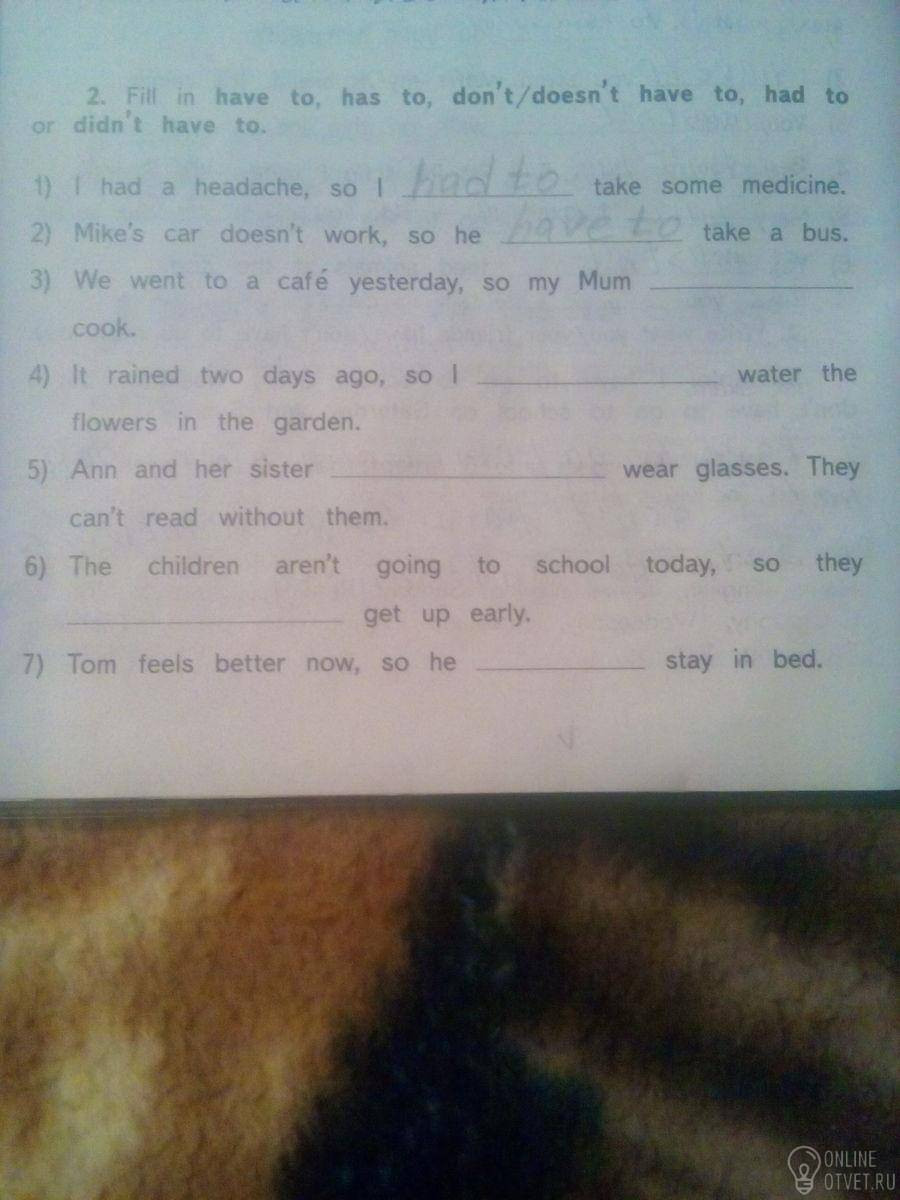 2. Fill in have to, has to, don't/doesn't have to, had to
or didn't have to.
1) I had a headache, so I had to take some medicine.
2) Mike's car doesn't work, so he have to take a bus.
3) We went to a café yesterday, so my Mum
cook.
4) It rained two days ago, so I water the
flowers in the garden.
5) Ann and her sister wear glasses. They
can't read without them.
6) The children aren't going to school today, so they
get up early.
7) Tom feels better now, so he stay in bed.
ONLINE
OTVET.RU